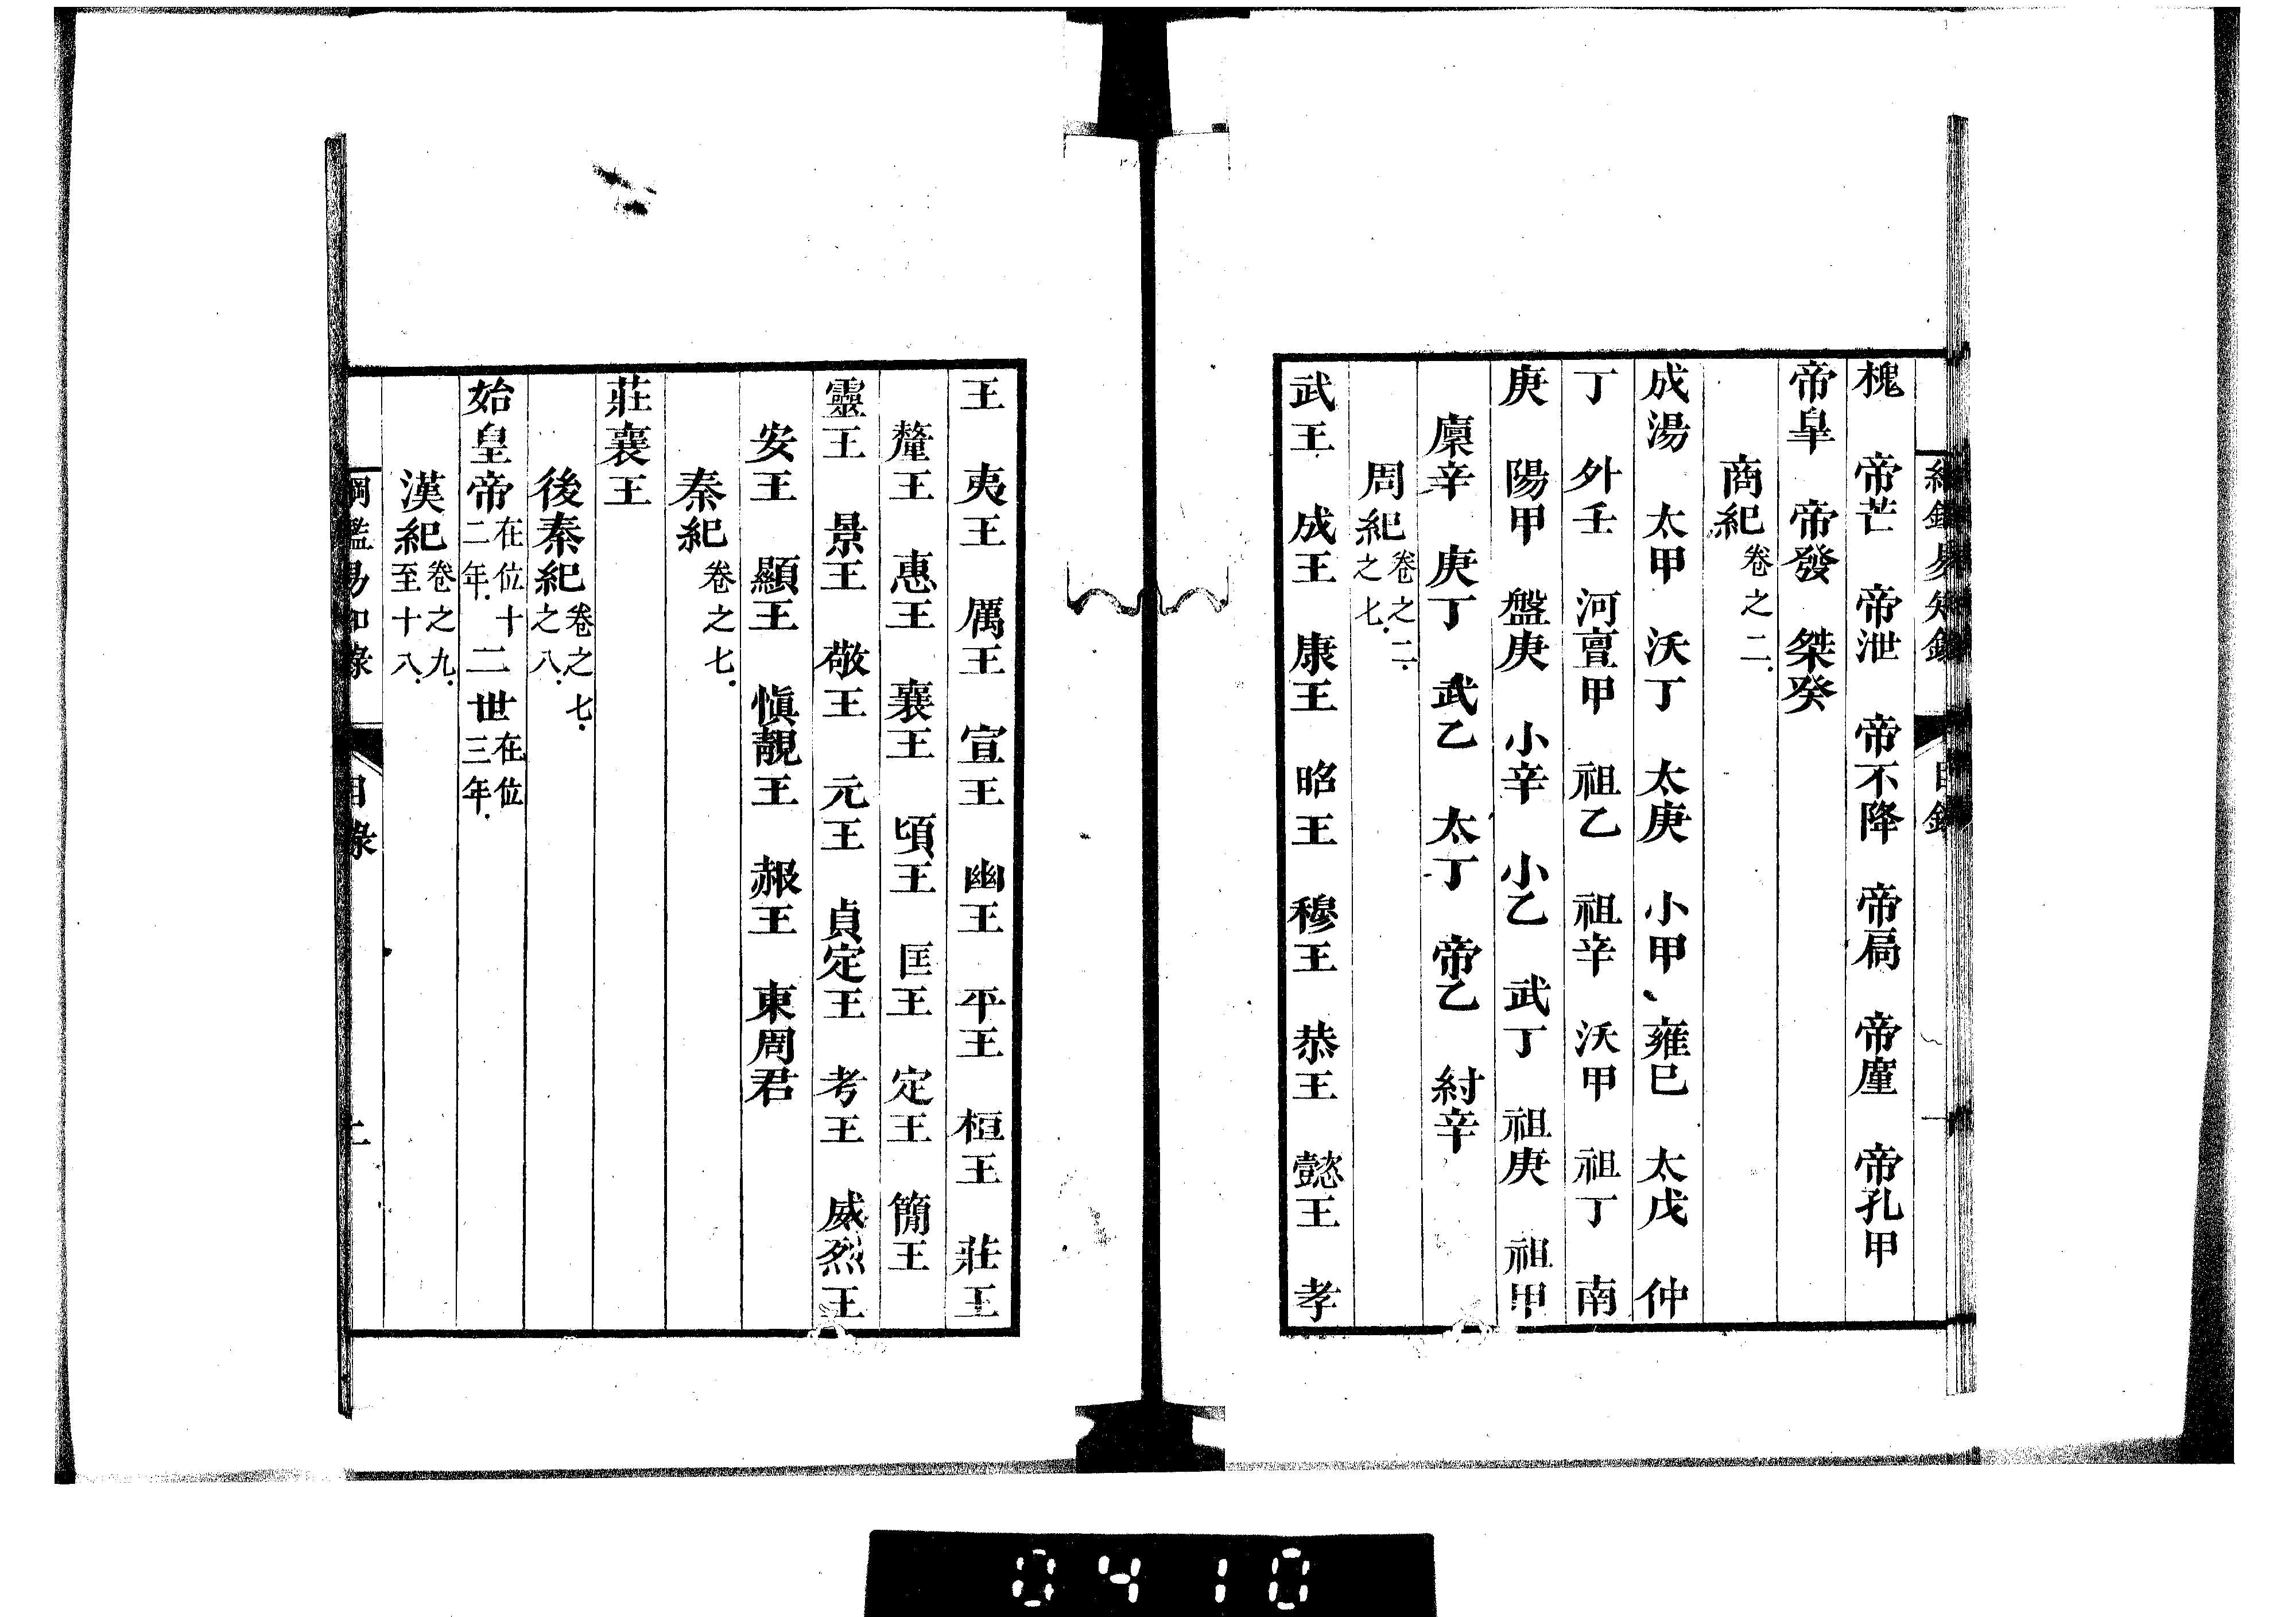 槐　帝芒　帝泄　帝不降　帝扃　帝廑　帝孔甲
帝皐　帝發　桀癸
商紀卷之二
成湯　太甲　沃丁　太庚　小甲　雍巳　太戊　仲
丁　外壬　河亶甲　祖乙　祖辛　沃甲　祖丁　南
庚　陽甲　盤庚　小辛　小乙　武丁　祖庚　祖甲
廩辛　庚丁　武乙　太丁　帝乙　紂辛
周紀卷之二之七
武王　成王　康王　昭王　穆王　恭王　懿王　孝
王　夷王　厲王　宣王　幽王　平王　桓王　莊王
釐王　惠王　襄王　頃王　匡王　定王　簡王
靈王　景王　敬王　元王　貞定王　考王　威烈王
安王　顯王　愼靚王　赧王　東周君
秦紀卷之七
莊襄王
後秦紀卷之七之八
始皇帝在位十二年　二世在位三年
漢紀卷之九至十八
綱鑑易知錄　目錄
0410